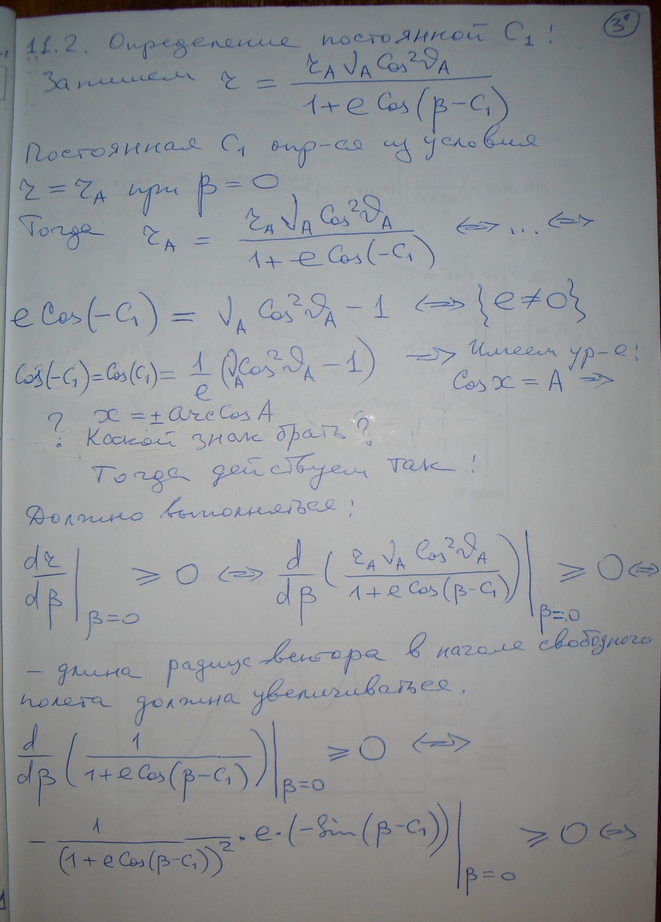 3'
11.2. Определение постоянной C₁!
Запишем r = (r_A ν_A Cos²ϑ_A) / (1 + e Cos(β − C₁))
Постоянная C₁ опр-ся из условия
r = r_A при β = 0
Тогда r_A = (r_A ν_A Cos²ϑ_A) / (1 + e Cos(−C₁)) ⇔ ... ⇔
e Cos(−C₁) = ν_A Cos²ϑ_A − 1 ⇔ {e ≠ 0}
Cos(−C₁) = Cos(C₁) = 1/e (ν_A Cos²ϑ_A − 1) ⇒ Имеем ур-е:
Cos x = A ⇒
? x = ± arcCos A
Какой знак брать?
Тогда действуем так!
Должно выполняться:
dr/dβ |β=0 ≥ 0 ⇔ d/dβ ( (r_A ν_A Cos²ϑ_A) / (1 + e Cos(β − C₁)) ) |β=0 ≥ 0 ⇔
– длина радиус-вектора в начале свободного
полета должна увеличиваться.
d/dβ ( 1 / (1 + e Cos(β − C₁)) ) |β=0 ≥ 0 ⇔
− 1 / (1 + e Cos(β − C₁))² · e · (− Sin(β − C₁)) |β=0 ≥ 0 ⇔